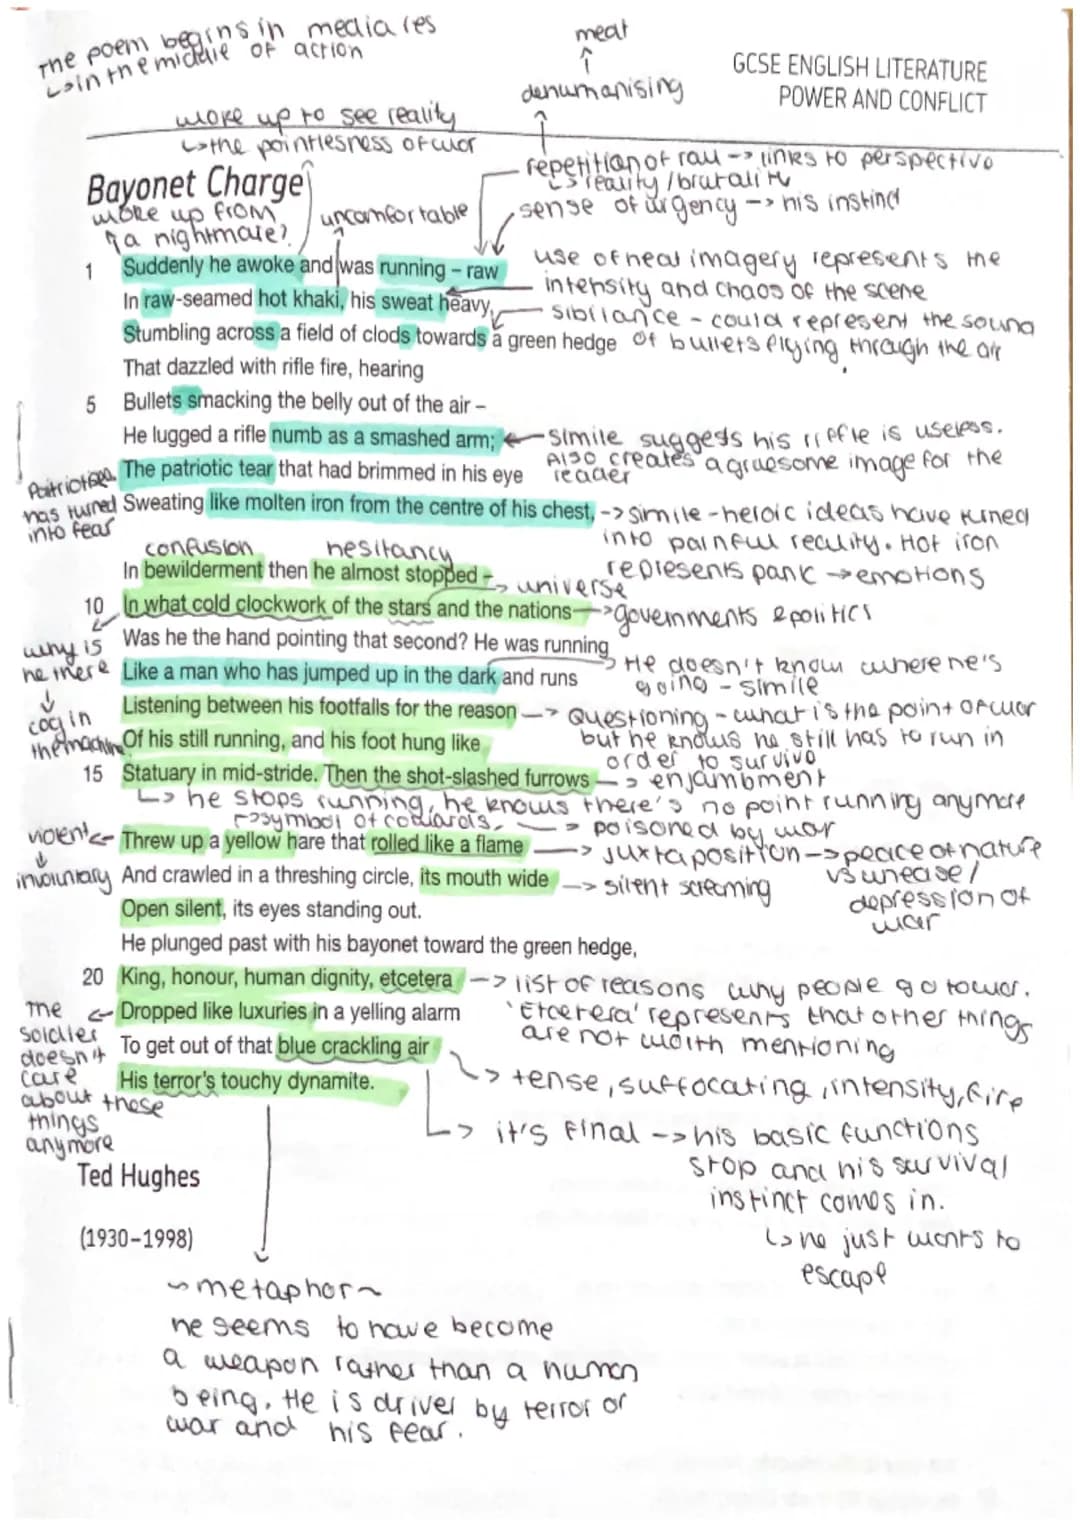 The poem begins in media res
↳ in the middle of action
meat
↑
dehumanising
GCSE ENGLISH LITERATURE
POWER AND CONFLICT
woke up to see reality
↳ the pointlesness of war
repetition of raw -> links to perspective
↳ reality / brutality
sense of urgency -> his instinct
Bayonet Charge
woke up from
a nightmare?
uncomfortable
1 Suddenly he awoke and was running – raw
use of heat imagery represents the
intensity and chaos of the scene
In raw-seamed hot khaki, his sweat heavy,
sibilance - could represent the sound
of bullets flying through the air
Stumbling across a field of clods towards a green hedge
That dazzled with rifle fire, hearing
5 Bullets smacking the belly out of the air –
He lugged a rifle numb as a smashed arm;
simile suggests his riffle is useless.
Also creates a gruesome image for the
reader
The patriotic tear that had brimmed in his eye
has turned
into fear
Sweating like molten iron from the centre of his chest,
-> simile - heroic ideas have turned
into painful reality. Hot iron
represents panic -> emotions
confusion hesitancy
In bewilderment then he almost stopped –
-> universe
10 In what cold clockwork of the stars and the nations
-> governments & politics
Was he the hand pointing that second? He was running
why is
he there
↓
cog in
the machine
Like a man who has jumped up in the dark and runs
He doesn't know where he's
going - simile
Listening between his footfalls for the reason
-> Questioning - what is the point of war
but he knows he still has to run in
order to survive
Of his still running, and his foot hung like
15 Statuary in mid-stride. Then the shot-slashed furrows
-> enjambment
↳ he stops running, he knows there's no point running anymore
↱ symbol of cowards,
-> poisoned by war
violent
↓
involuntary
Threw up a yellow hare that rolled like a flame
-> juxtaposition -> peace of nature
vs unease /
depression of
war
And crawled in a threshing circle, its mouth wide
-> silent screaming
Open silent, its eyes standing out.
He plunged past with his bayonet toward the green hedge,
20 King, honour, human dignity, etcetera
-> list of reasons why people go to war.
'Etcetera' represents that other things
are not worth mentioning
Dropped like luxuries in a yelling alarm
The
soldier
doesn't
care
about these
things
anymore
To get out of that blue crackling air
-> tense, suffocating, intensity, fire
His terror's touchy dynamite.
↳ it's final -> his basic functions
stop and his survival
instinct comes in.
↳ he just wants to
escape
Ted Hughes
(1930–1998)
~metaphor~
he seems to have become
a weapon rather than a human
being. He is driven by terror of
war and his fear.